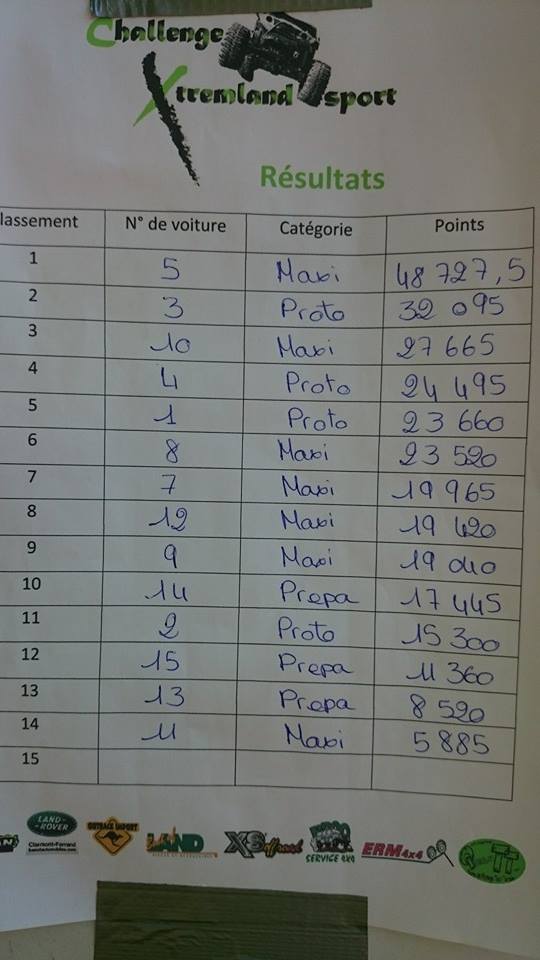 Challenge
Xtremland sport
Résultats
lassement N° de voiture Catégorie Points
1 5 Maxi 48 727,5
2 3 Proto 32 095
3 10 Maxi 27 665
4 4 Proto 24 495
5 1 Proto 23 660
6 8 Maxi 23 520
7 7 Maxi 19 965
8 12 Maxi 19 420
9 9 Maxi 19 040
10 14 Prepa 17 445
11 2 Proto 15 300
12 15 Prepa 11 360
13 13 Prepa 8 520
14 11 Maxi 5 885
15
LAND-
ROVER
Clermont-Ferrand
OUTBACK IMPORT
LAND
XS offroad
SERVICE 4x4
ERM 4x4
TT